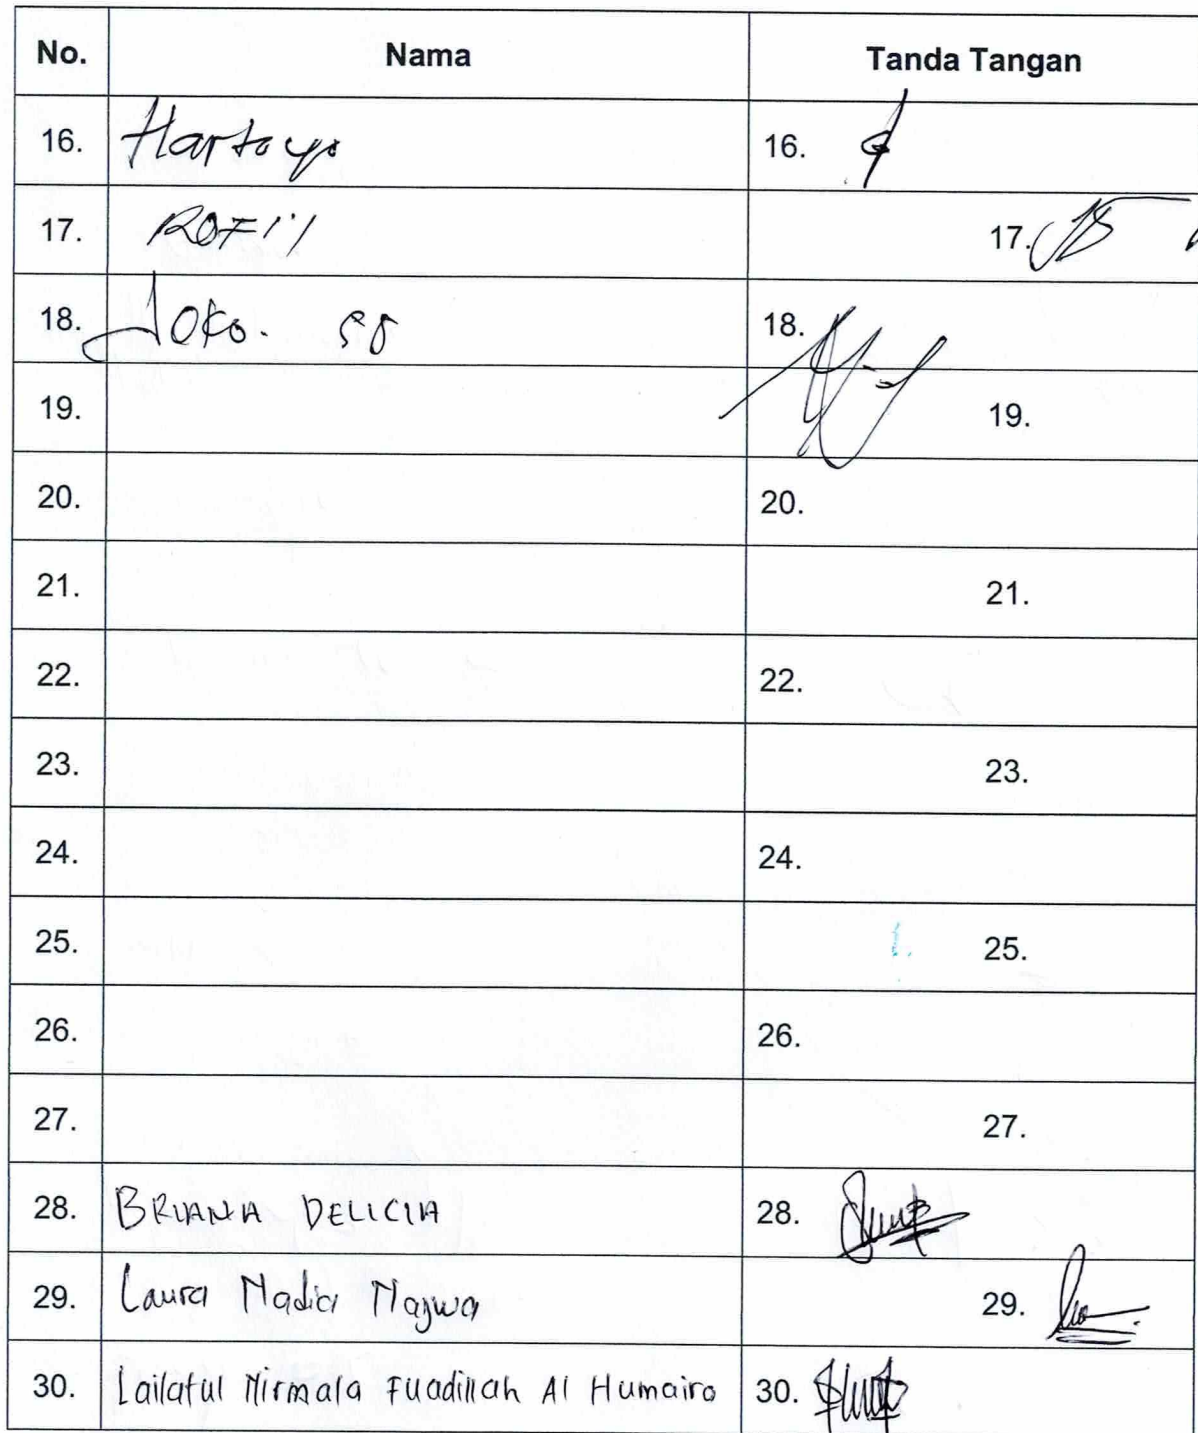 No. Nama Tanda Tangan
16. Hartoyo 16.
17. ROFI'I 17.
18. Joko. SS 18.
19. 19.
20. 20.
21. 21.
22. 22.
23. 23.
24. 24.
25. 25.
26. 26.
27. 27.
28. BRIANA DELICIA 28.
29. Laura Nadia Najwa 29.
30. Lailatul Nirmala Fuadillah Al Humairo 30.